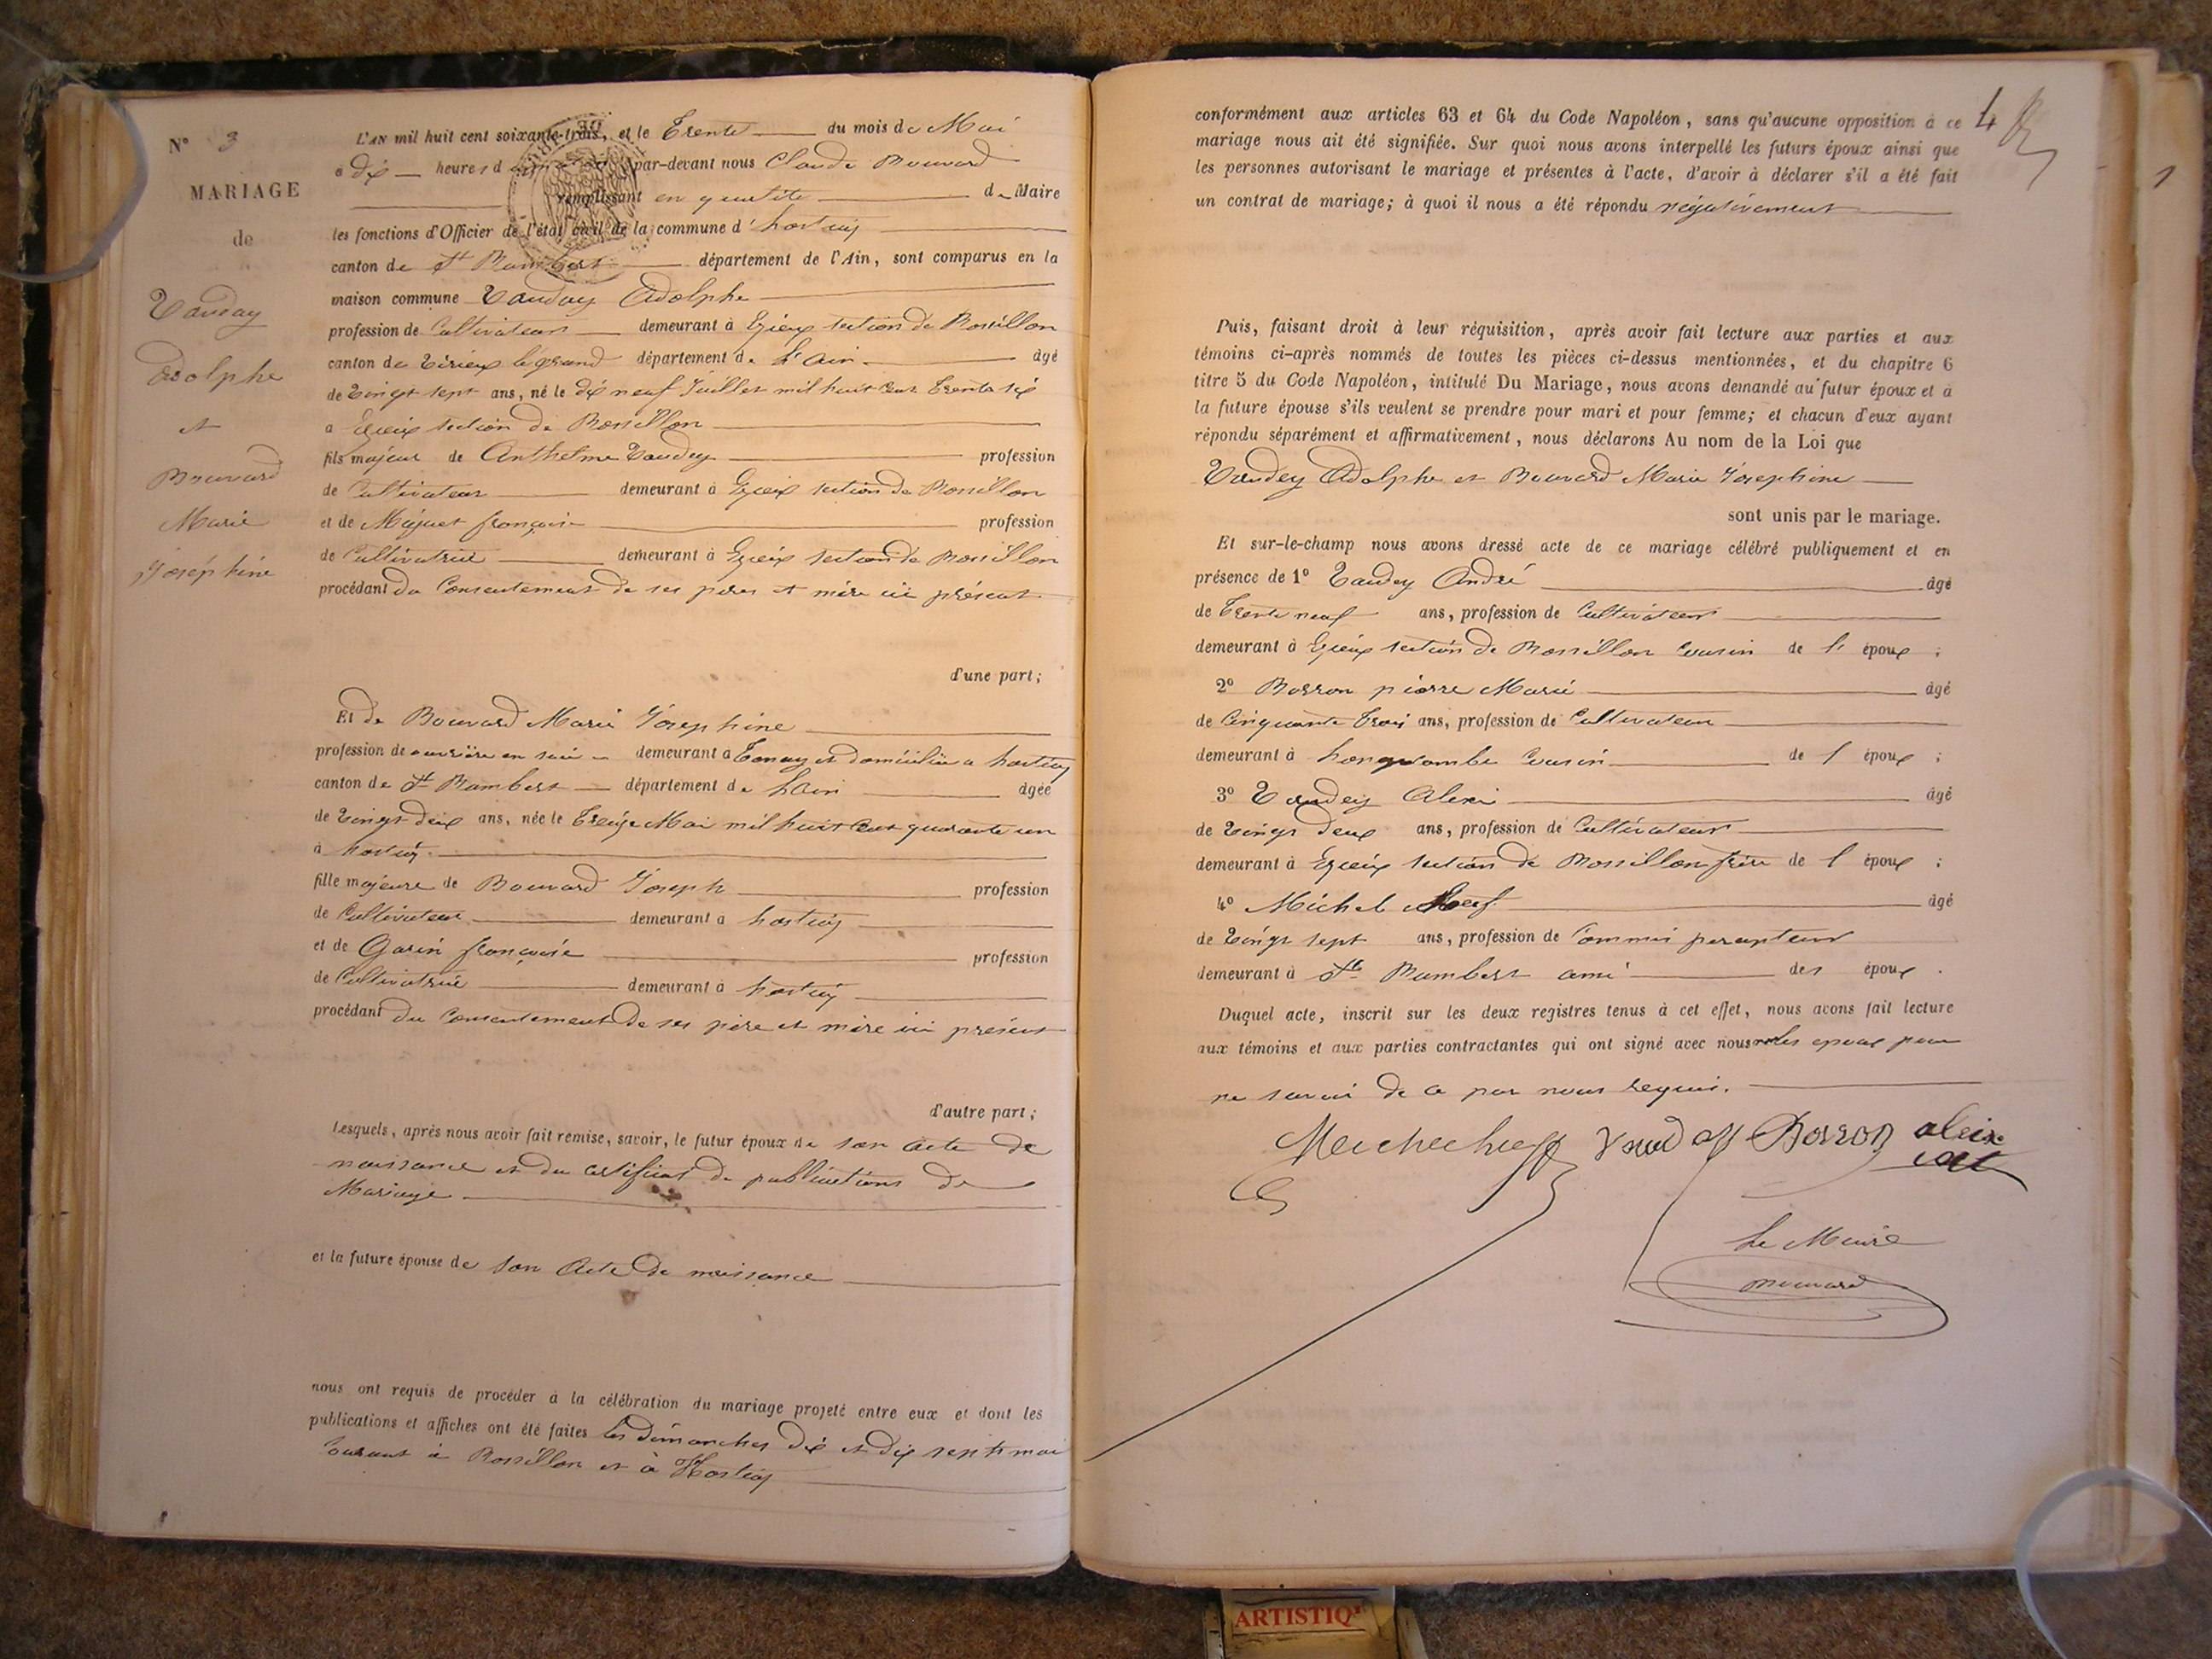 N° 3
MARIAGE
de
Vauday
Adolphe
et
Bouvard
Marie
Joséphine
L'AN mil huit cent soixante-trois, et le Trente du mois de Mai
à dix heures d par-devant nous Claude Bouvard
remplissant en qualité de Maire
les fonctions d'Officier de l'état civil de la commune d'hostiaz
canton de St Rambert département de l'Ain, sont comparus en la
maison commune Vauday Adolphe
profession de Cultivateur demeurant à Egieux section de Rossillon
canton de Virieux le grand département de l'Ain âgé
de Vingt sept ans, né le dix neuf Juillet mil huit Cent Trente six
à Egieux section de Rossillon
fils majeur de Anthelme Vaudey profession
de Cultivateur demeurant à Egieix section de Rossillon
et de françoise profession
de Cultivatrice demeurant à Egieix section de Rossillon
procédant du Consentement de ses père et mère ici présent
d'une part;
Et de Bouvard Marie Josephine
profession de ouvrière en soie demeurant à Tenay et domiciliée a hostiaz
canton de St Rambert département de L'Ain âgée
de Vingt deux ans, née le Treize Mai mil huit Cent quarante un
à hostiaz
fille majeure de Bouvard Joseph profession
de Cultivateur demeurant à hostiaz
et de Garin françoise profession
de Cultivatrice demeurant à hostiaz
procédant du Consentement de ses père et mère ici présent
d'autre part;
Lesquels, après nous avoir fait remise, savoir, le futur époux de son acte de
naissance et du certificat de publications de
Mariage
et la future épouse de son Acte de naissance
nous ont requis de procéder à la célébration du mariage projeté entre eux et dont les
publications et affiches ont été faites les dimanches dix et dix sept mai
Courant à Rossillon et à Hostiaz
4
conformément aux articles 63 et 64 du Code Napoléon, sans qu'aucune opposition à ce
mariage nous ait été signifiée. Sur quoi nous avons interpellé les futurs époux ainsi que
les personnes autorisant le mariage et présentes à l'acte, d'avoir à déclarer s'il a été fait
un contrat de mariage; à quoi il nous a été répondu négativement
Puis, faisant droit à leur réquisition, après avoir fait lecture aux parties et aux
témoins ci-après nommés de toutes les pièces ci-dessus mentionnées, et du chapitre 6
titre 5 du Code Napoléon, intitulé Du Mariage, nous avons demandé au futur époux et à
la future épouse s'ils veulent se prendre pour mari et pour femme; et chacun d'eux ayant
répondu séparément et affirmativement, nous déclarons Au nom de la Loi que
Vaudey Adolphe et Bouvard Marie Josephine
sont unis par le mariage.
Et sur-le-champ nous avons dressé acte de ce mariage célébré publiquement et en
présence de 1° Vaudey André âgé
de Trente neuf ans, profession de Cultivateur
demeurant à Egieix section de Rossillon Cousin de l' époux ;
2° Borron pierre Marie âgé
de Cinquante Trois ans, profession de Cultivateur
demeurant à Cousin de l' époux ;
3° Vaudey Alexi âgé
de Vingt deux ans, profession de Cultivateur
demeurant à Egieix section de Rossillon frère de l' époux ;
4° Michel âgé
de Vingt sept ans, profession de Commis percepteur
demeurant à St Rambert ami des époux .
Duquel acte, inscrit sur les deux registres tenus à cet effet, nous avons fait lecture
aux témoins et aux parties contractantes qui ont signé avec nous les époux pour
ne savoir de ce par nous requis.
Borron alexi
Le Maire
Bouvard
ARTISTIQ